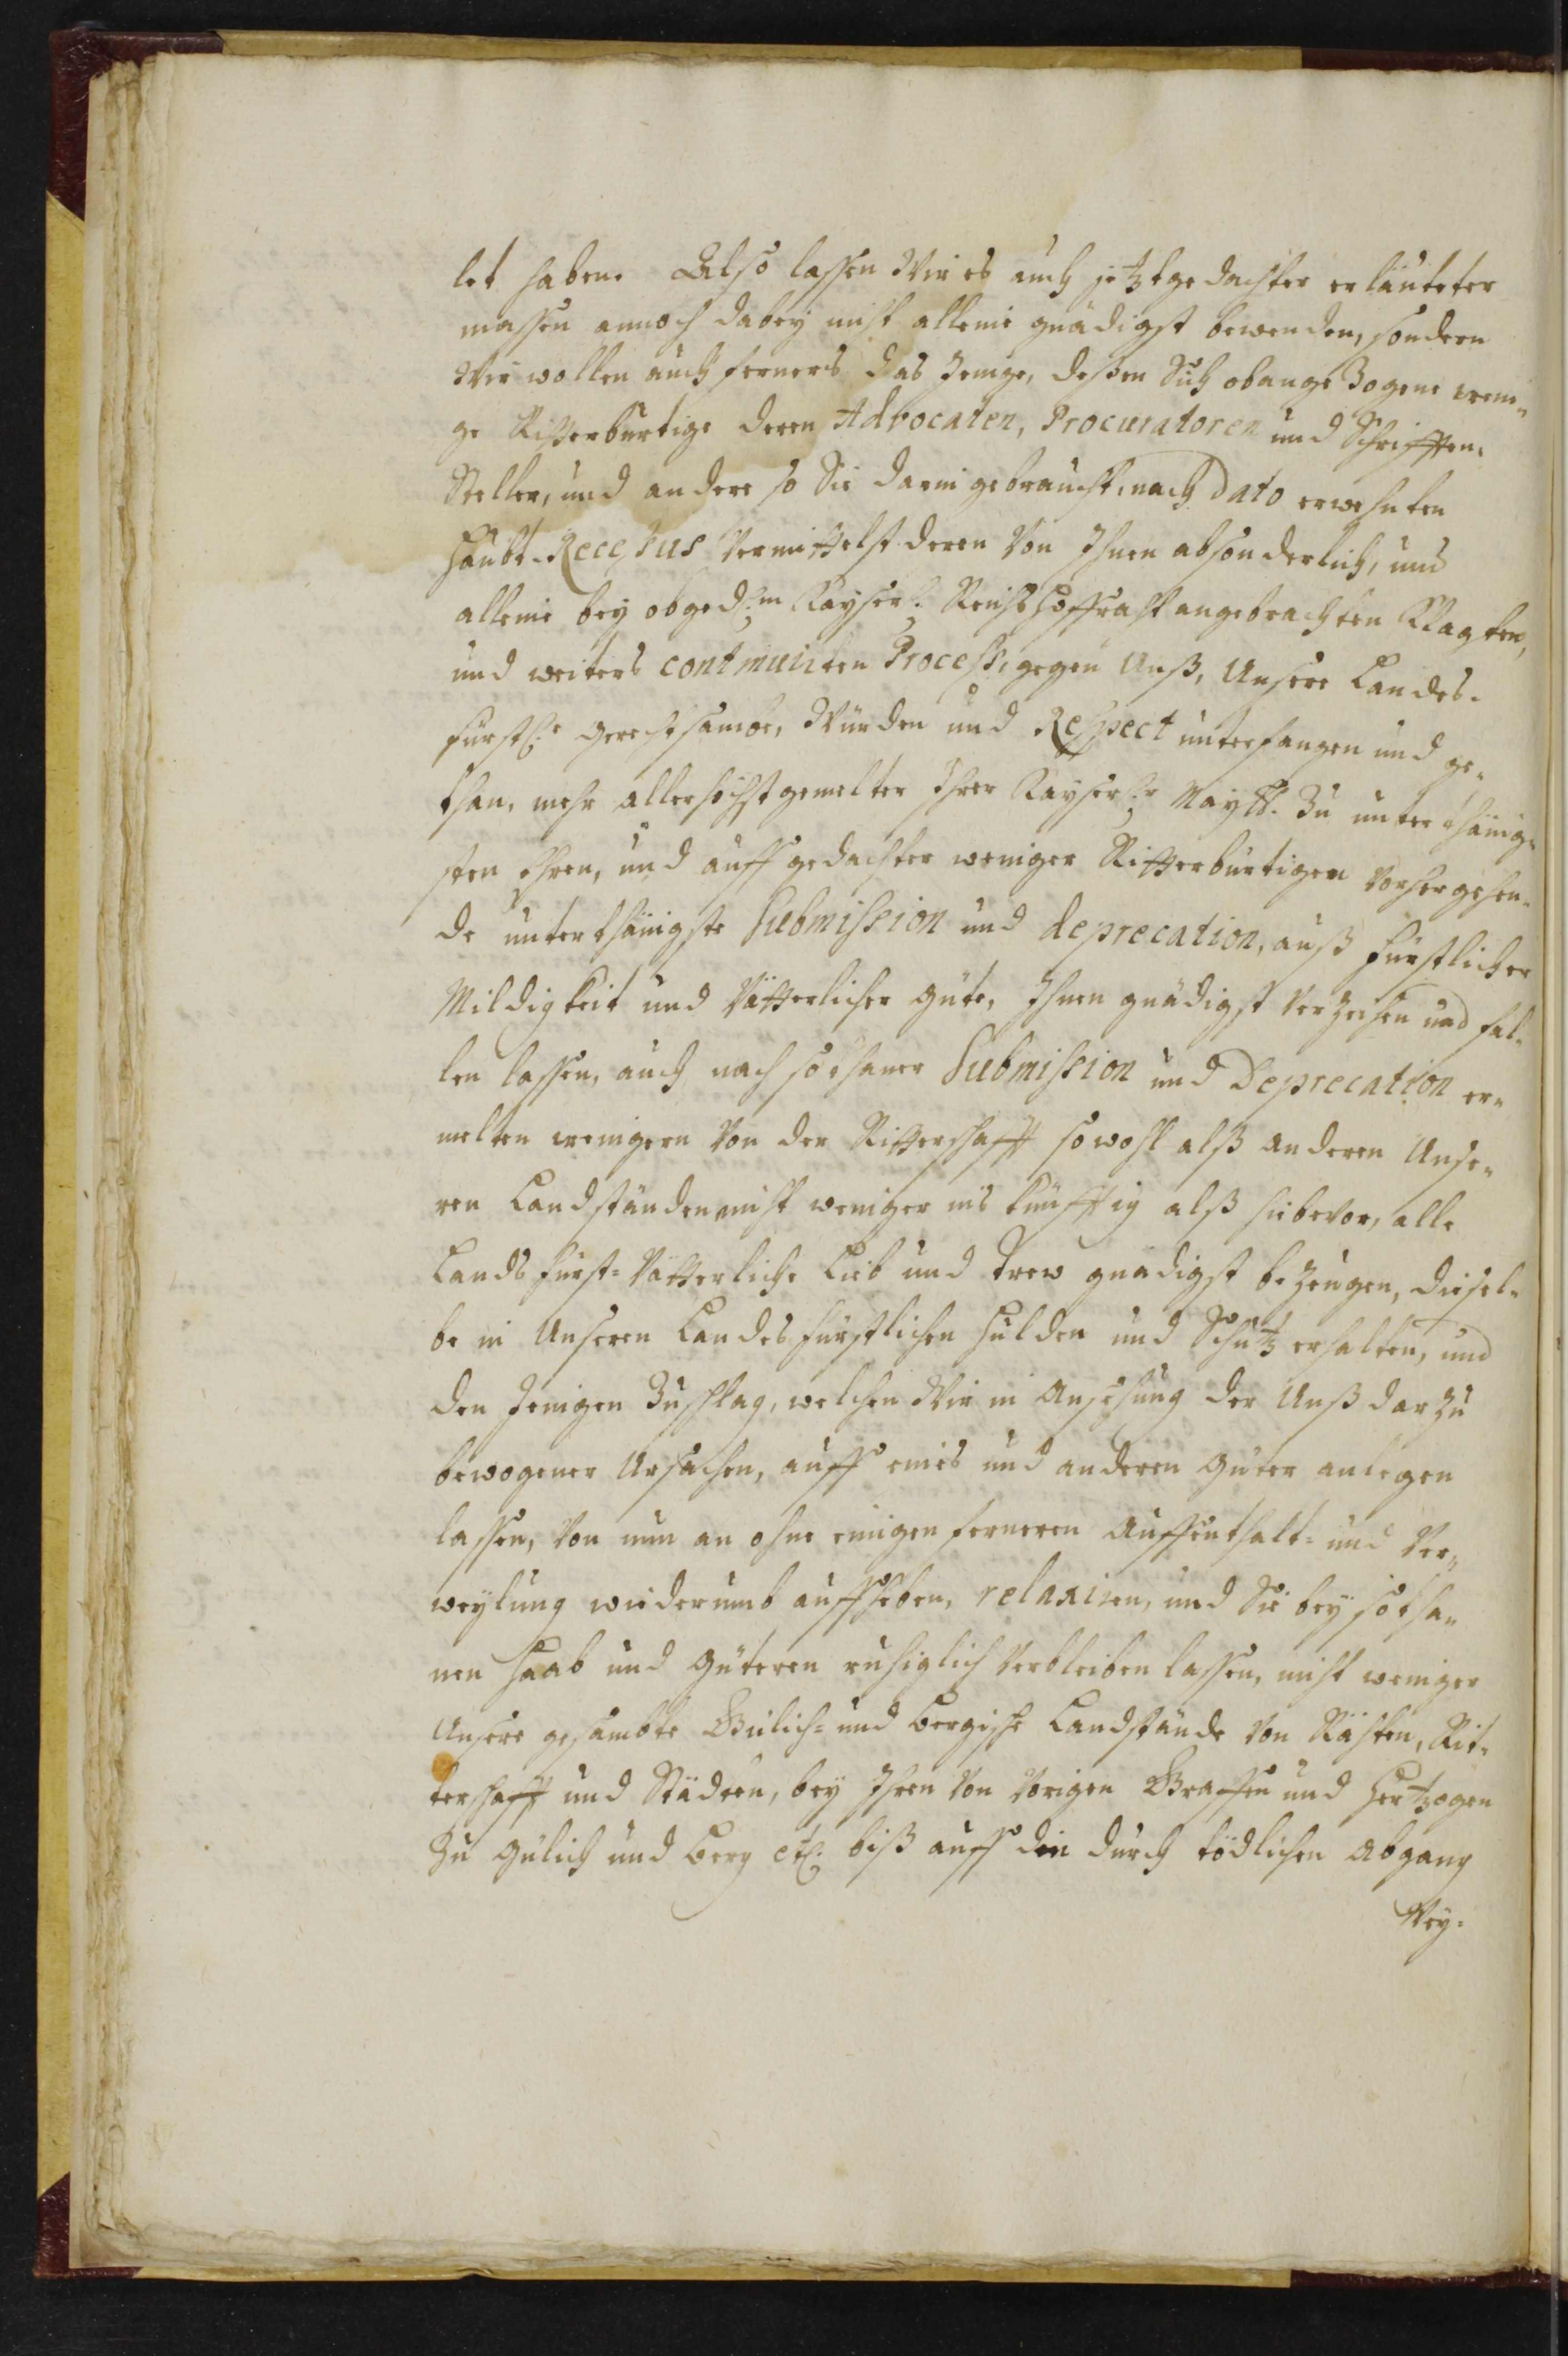 let haben. Also lassen Wir es auch jetztgedachter erläuteter
massen annoch dabey nicht alleine gnädigst bewenden, sondern
Wir wollen auch ferners das Jenige, deßen Sich obangezogene weni„
ge Ritterbürtige deren Advocaten, Procuratoren und Schrifften„
Steller, und andere so Sie darin gebraucht, nach Dato erwehnten
Haubt-Recessus Vermittelst deren Von Ihnen absonderlich, und
alleine bey obgedm Kayserl. Reichshoffraht angebrachten Klagten,
und weiters continuirten Process, gegen Unß, Unsere Landes-
fürstle gerechtsambe, Würden und Respect unterfangen und ge„
than, mehr allerhöchstgemelter Ihrer Kayserlr Maytt. Zu unterthänig„
sten Ehren, und auff gedachter weniger Ritterbürtigen Vorhergehen„
de unterthänigste Submission und deprecation, auß Fürstlicher
Mildigkeit und Vätterlicher güte, Ihnen gnädigst Verzeihen und fal„
len lassen, auch nach sothaner Submission und Deprecation er„
melten wenigern Von der Ritterschafft sowohl alß anderen Unse„
ren Landständen nicht weniger ins künfftig alß hiebevor, alle
Lands Fürst-Vätterliche Lieb und Trew gnädigst bezeugen, diesel„
be in Unseren Landesfürstlichen Hulden und Schutz erhalten, und
den Jenigen Zuschlag, welchen Wir in Ansehung der Unß darzu
bewogener Ursachen, auff eines und anderen güter anlegen
lassen, Von nun an ohne einigen ferneren Auffenthalt- und Ver„
weylung wiederumb auffheben, relaxiren, und Sie bey sotha„
nen Haab und güteren ruhiglich Verbleiben lassen, nicht weniger
Unsere gesambte Gülich- und Bergische Landstände Von Rähten, Rit„
terschafft und Städten, bey Ihren Von Vorigen Graffen und Hertzogen
zu Gülich und Berg etc. biß auff den durch tödlichen Abgang
Wey-